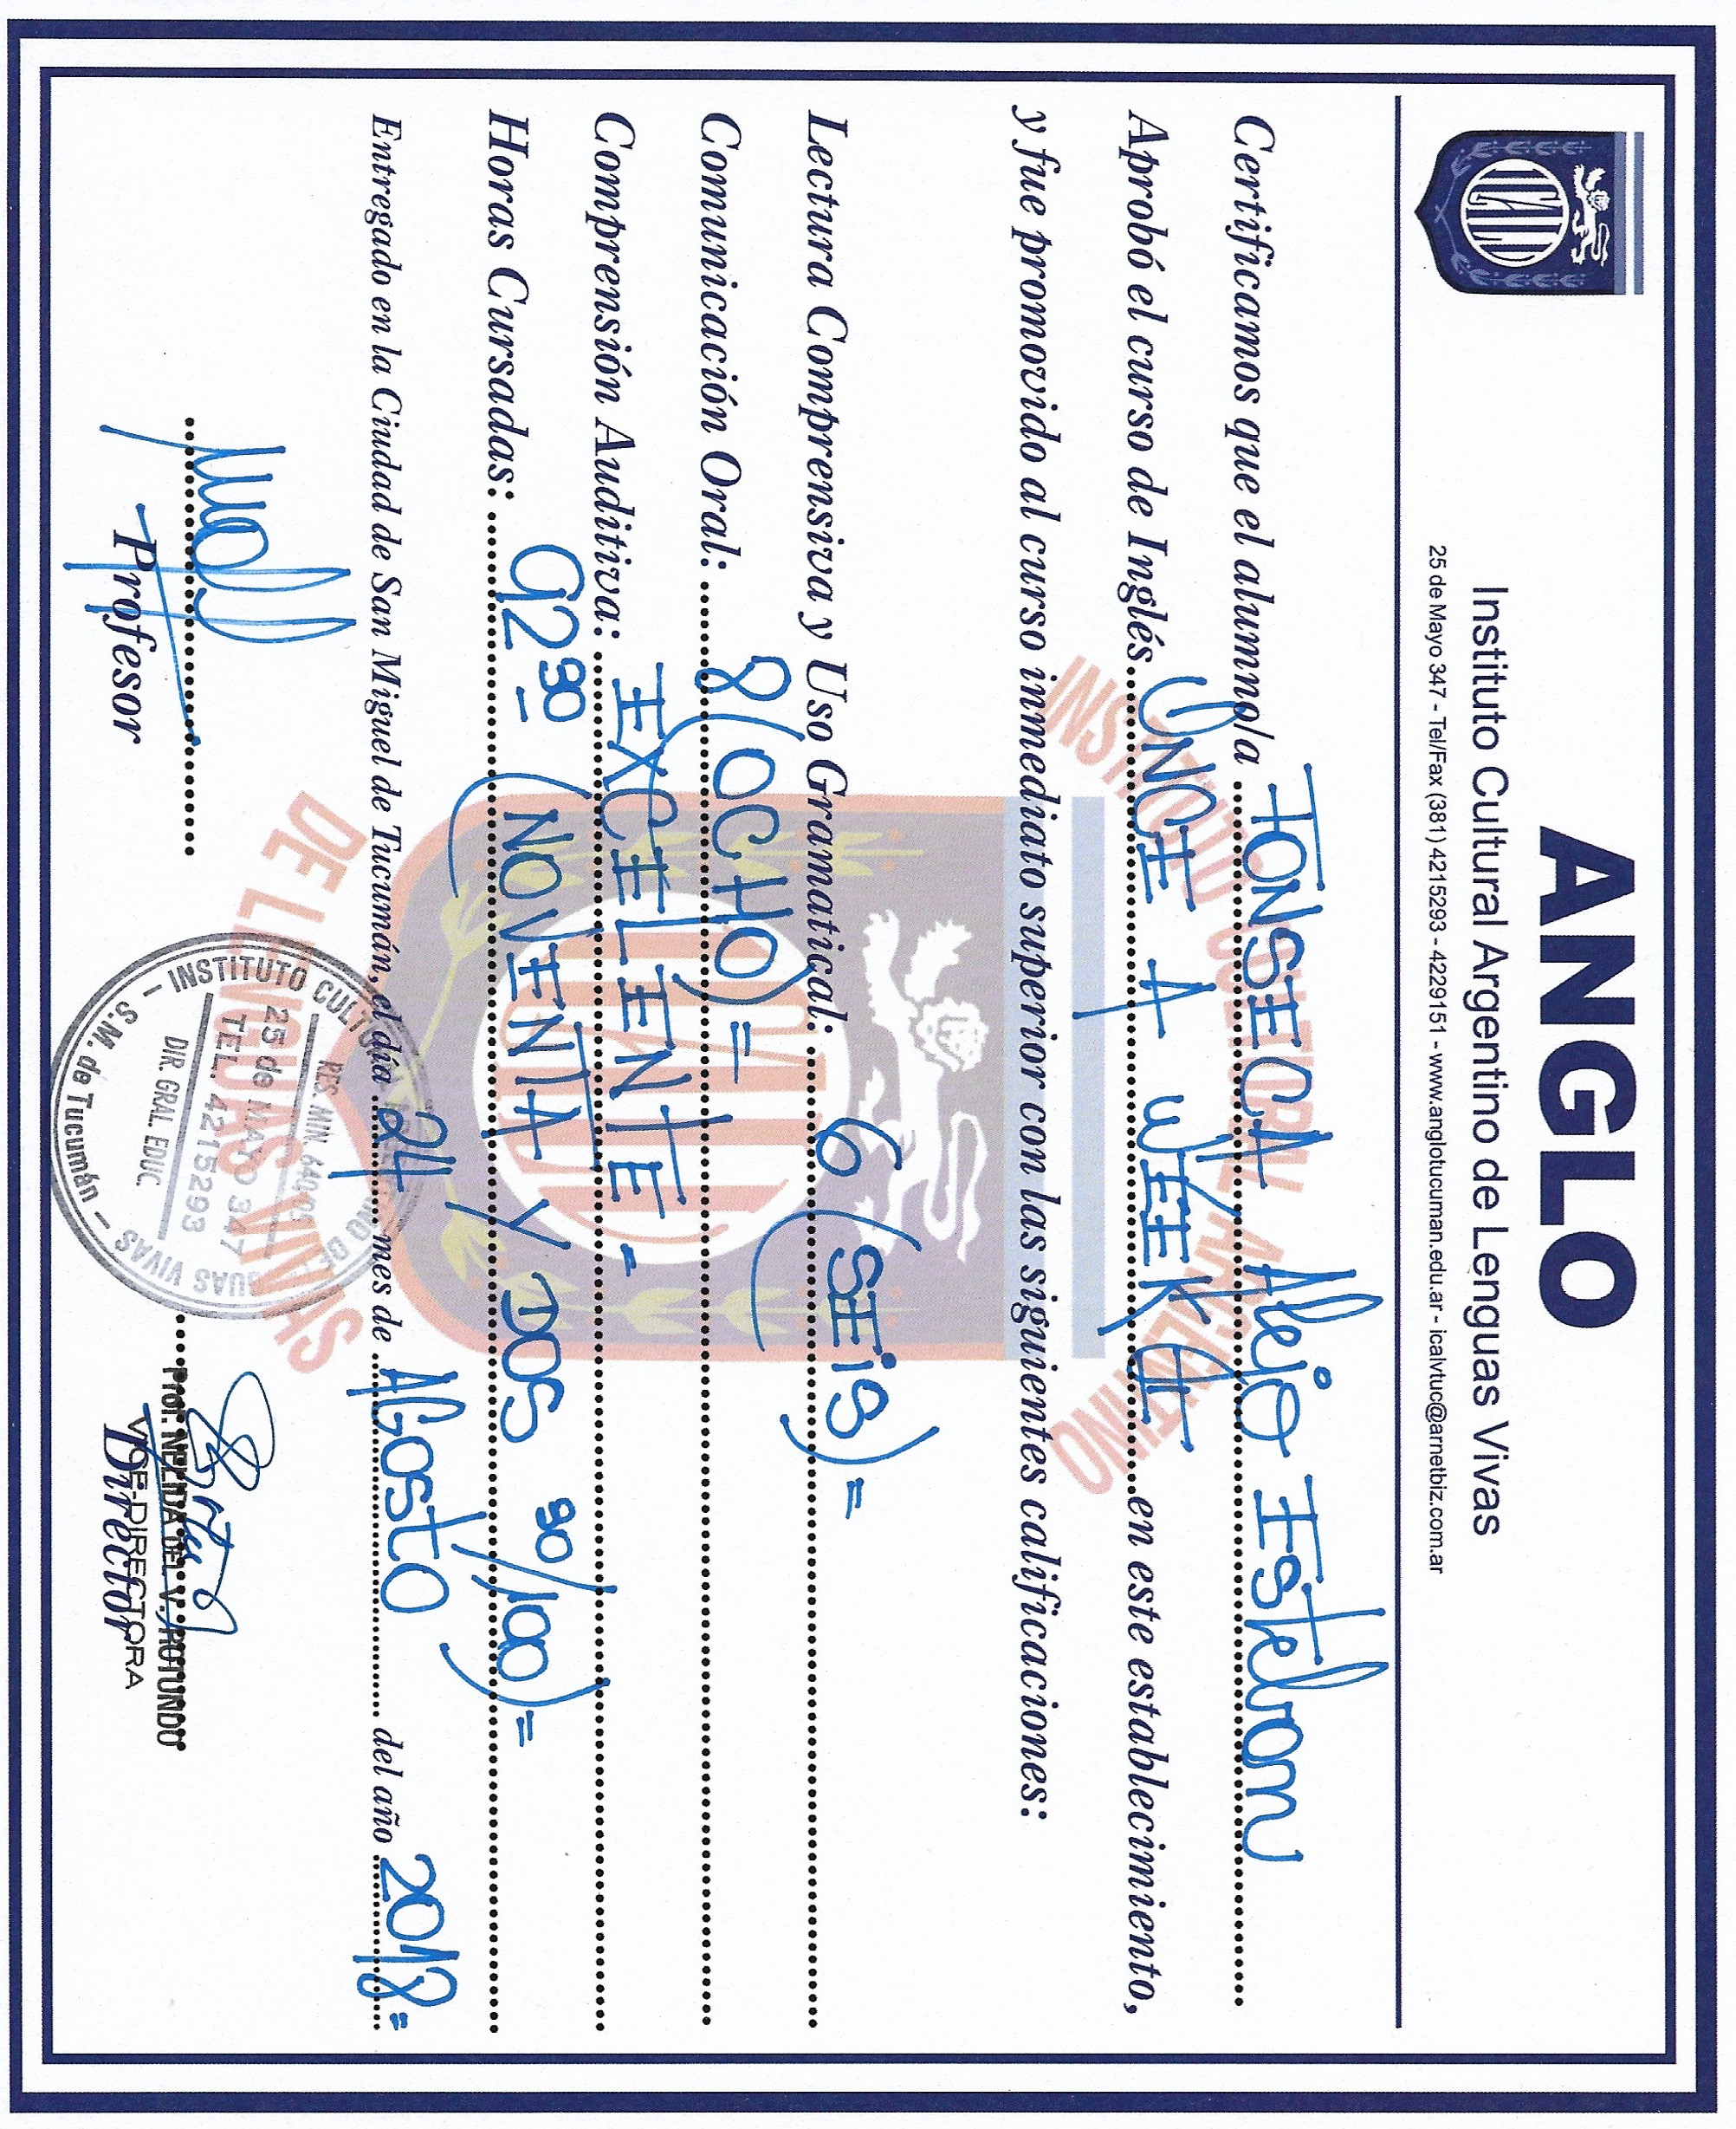 ICALV
ANGLO
Instituto Cultural Argentino de Lenguas Vivas
25 de Mayo 347 - Tel/Fax (381) 4215293 - 4229151 - www.anglotucuman.edu.ar - icalvtuc@arnetbiz.com.ar
Certificamos que el alumno/a FONSECA Alejo Esteban
Aprobó el curso de Inglés ONCE A WEEK en este establecimiento,
y fue promovido al curso inmediato superior con las siguientes calificaciones:
Lectura Comprensiva y Uso Gramatical: 6 (SEiS)=
Comunicación Oral: 8 (OCHO)=
Comprensión Auditiva: EXCELENTE -
Horas Cursadas: 92 30 (NOVENTA Y DOS 30/100)=
Entregado en la Ciudad de San Miguel de Tucumán, el día 24 mes de AGosto del año 2018=
INSTITUTO CULTURAL ARGENTINO
DE LENGUAS VIVAS
INSTITUTO CULTURAL ARGENTINO DE LENGUAS VIVAS
RES. MIN. 640/05
25 de MAYO 347
TEL. 4215293
DIR. GRAL. EDUC.
S.M. de Tucumán
Profesor
Prof. NELIDA DEL V. ROTUNDO
VICE-DIRECTORA
Director